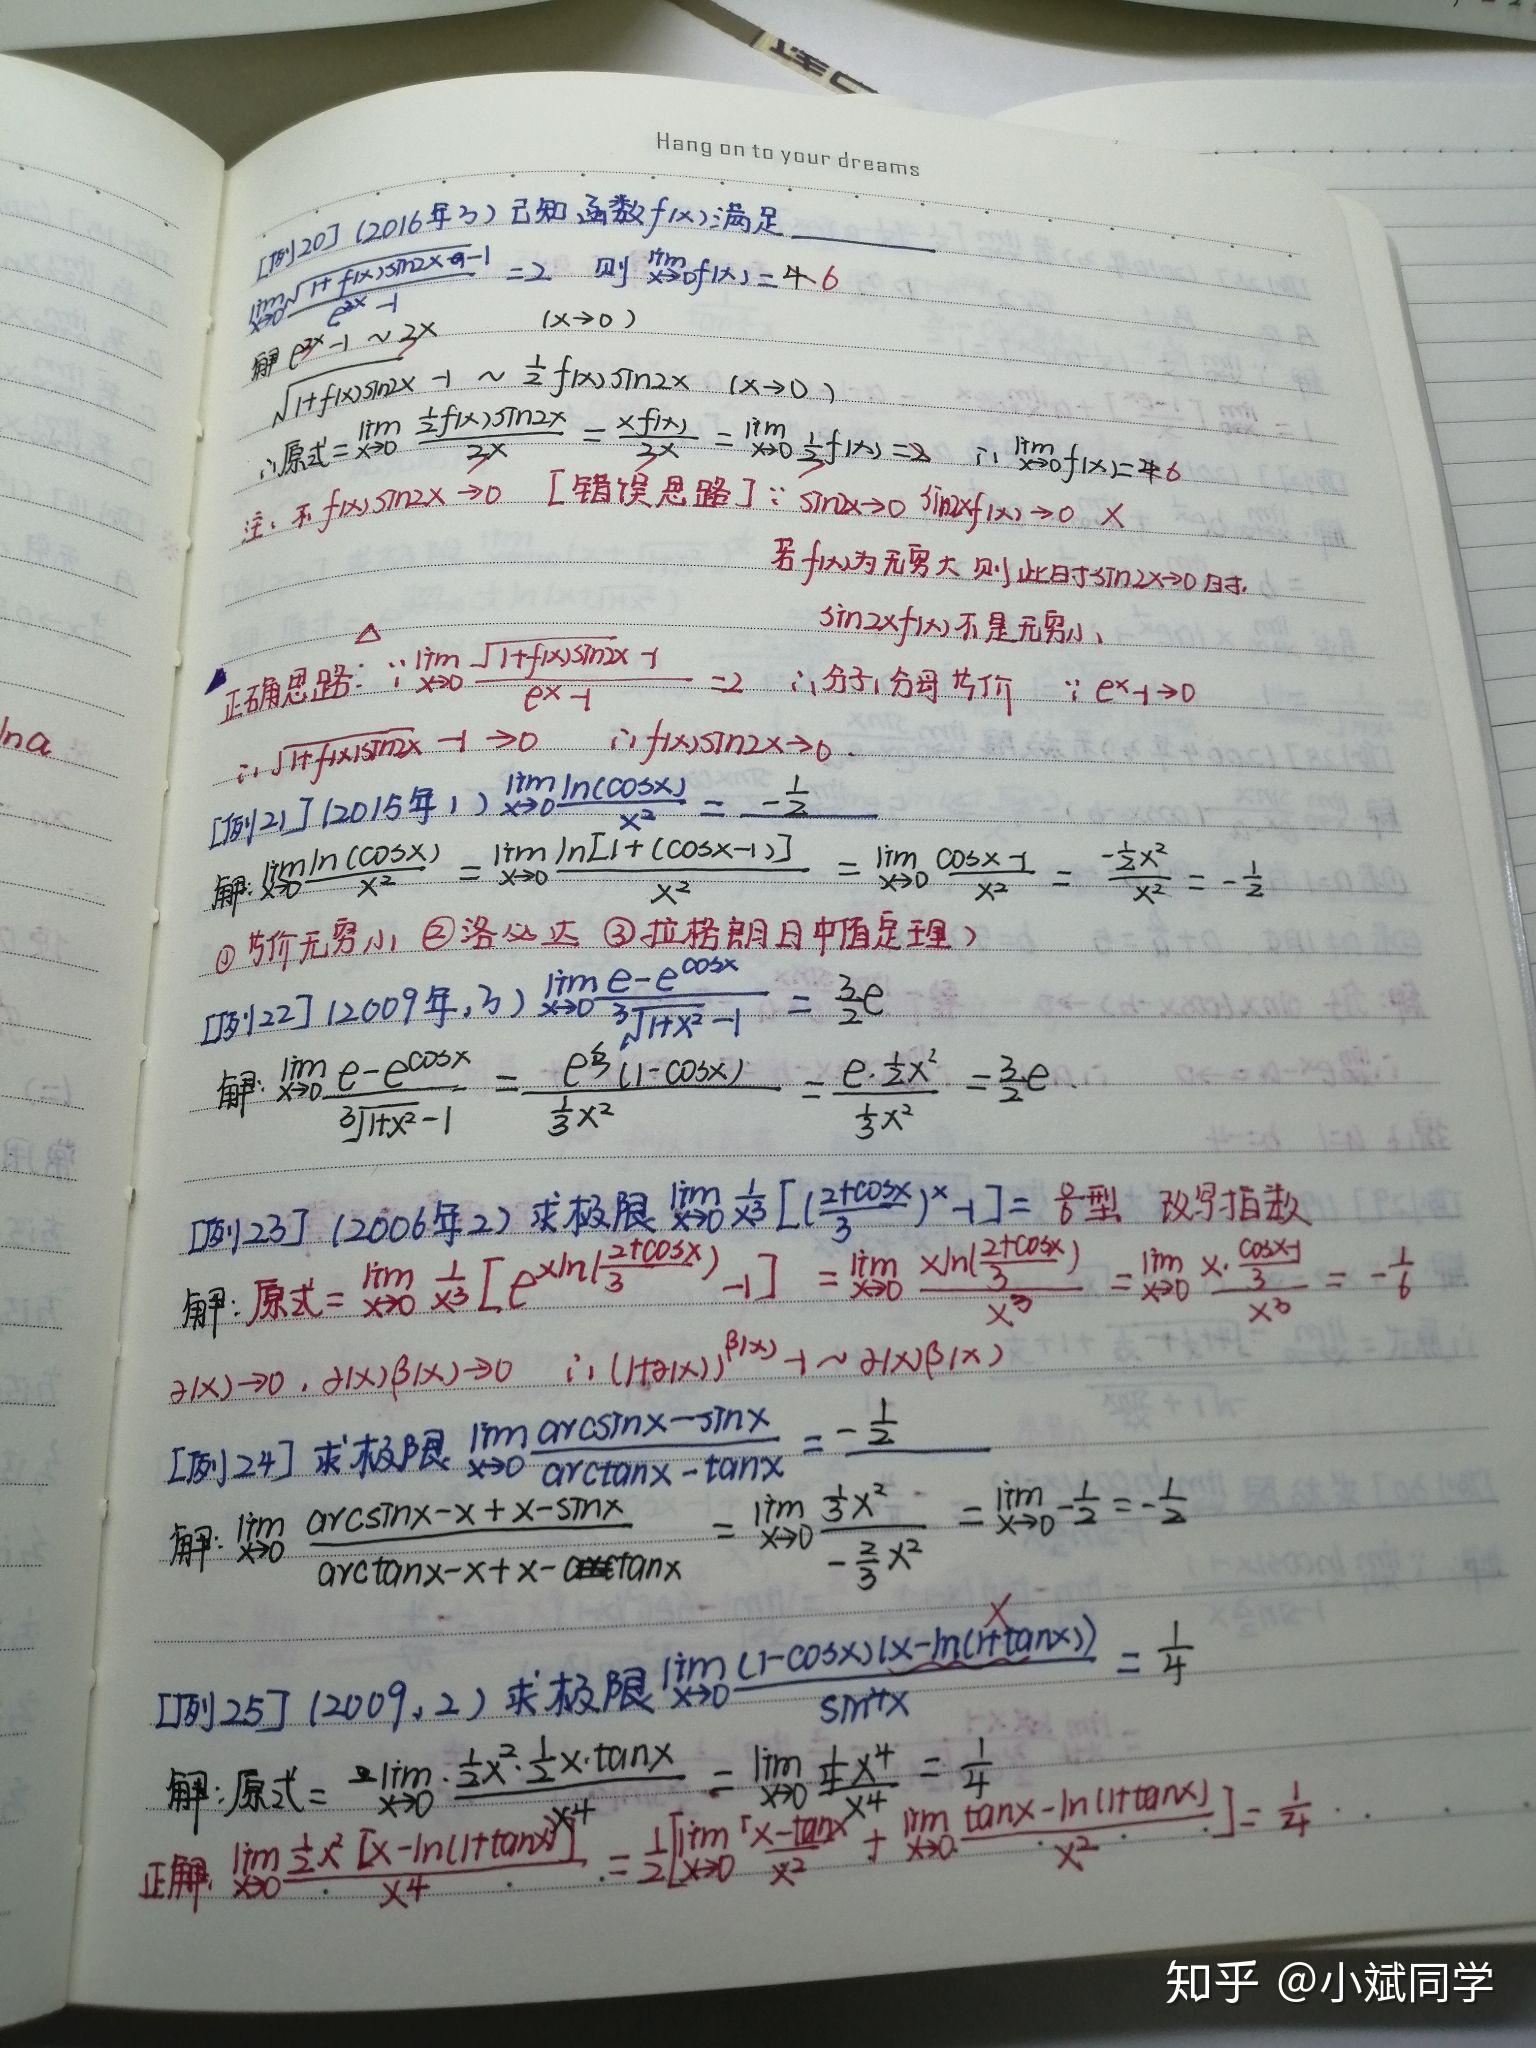 Hang on to your dreams
[例20] (2016年3) 已知函数f(x)满足______
lim x→0 (√(1+f(x)sin2x) -1)/(e^3x -1) =2 则 lim x→0 f(x) = 4 6
解 e^3x -1 ~ 3x (x→0)
√(1+f(x)sin2x) -1 ~ 1/2 f(x)sin2x (x→0)
∴原式= lim x→0 (1/2 f(x)sin2x)/3x = xf(x)/3x = lim x→0 1/3 f(x) =2 ∴ lim x→0 f(x)=4 6
注: f(x)sin2x→0 [错误思路] ∵ sin2x→0 sin2xf(x)→0 ×
若f(x)为无穷大 则此时sin2x→0时,
sin2xf(x)不是无穷小、
△
正确思路: ∵ lim x→0 (√(1+f(x)sin2x) -1)/(e^x -1) =2 ∴分子,分母等价 ∵ e^x -1→0
∴ √(1+f(x)sin2x) -1 →0 ∴ f(x)sin2x→0.
lna
[例21] (2015年1) lim x→0 ln(cosx)/x² = -1/2
解: lim x→0 ln(cosx)/x² = lim x→0 ln[1+(cosx-1)]/x² = lim x→0 (cosx-1)/x² = (-1/2 x²)/x² = -1/2
①等价无穷小 ②洛必达 ③拉格朗日中值定理
[例22] (2009年,3) lim x→0 (e-e^cosx)/(³√(1+x²) -1) = 3/2 e
解: lim x→0 (e-e^cosx)/(³√(1+x²) -1) = e^ξ(1-cosx)/(1/3 x²) = (e·1/2 x²)/(1/3 x²) = 3/2 e.
[例23] (2006年2) 求极限 lim x→0 1/x³ [((2+cosx)/3)^x -1] = 0/0型 改写指数
解: 原式= lim x→0 1/x³ [e^(xln((2+cosx)/3)) -1] = lim x→0 xln((2+cosx)/3)/x³ = lim x→0 (x·(cosx-1)/3)/x³ = -1/6
α(x)→0, α(x)β(x)→0 ∴ (1+α(x))^β(x) -1 ~ α(x)β(x)
[例24] 求极限 lim x→0 (arcsinx-sinx)/(arctanx-tanx) = -1/2
解: lim x→0 (arcsinx-x+x-sinx)/(arctanx-x+x-tanx) = lim x→0 (1/3 x²)/(-2/3 x²) = lim x→0 -1/2 = -1/2
[例25] (2009,2) 求极限 lim x→0 (1-cosx)(x-ln(1+tanx))/sin⁴x = 1/4
×
解: 原式= lim x→0 · (1/2 x²·1/2 x·tanx)/x⁴ = lim x→0 (1/4 x⁴)/x⁴ = 1/4
正解: lim x→0 (1/2 x² [x-ln(1+tanx)])/x⁴ = 1/2 [lim x→0 (x-tanx)/x² + lim x→0 (tanx-ln(1+tanx))/x²] = 1/4
知乎 @小斌同学